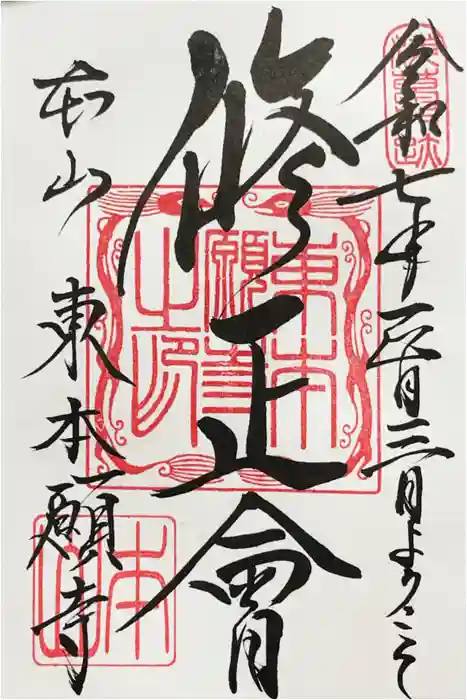 令和七年一月三日ようこそ
修正會
本山 東本願寺
東本
願寺
之印
本山